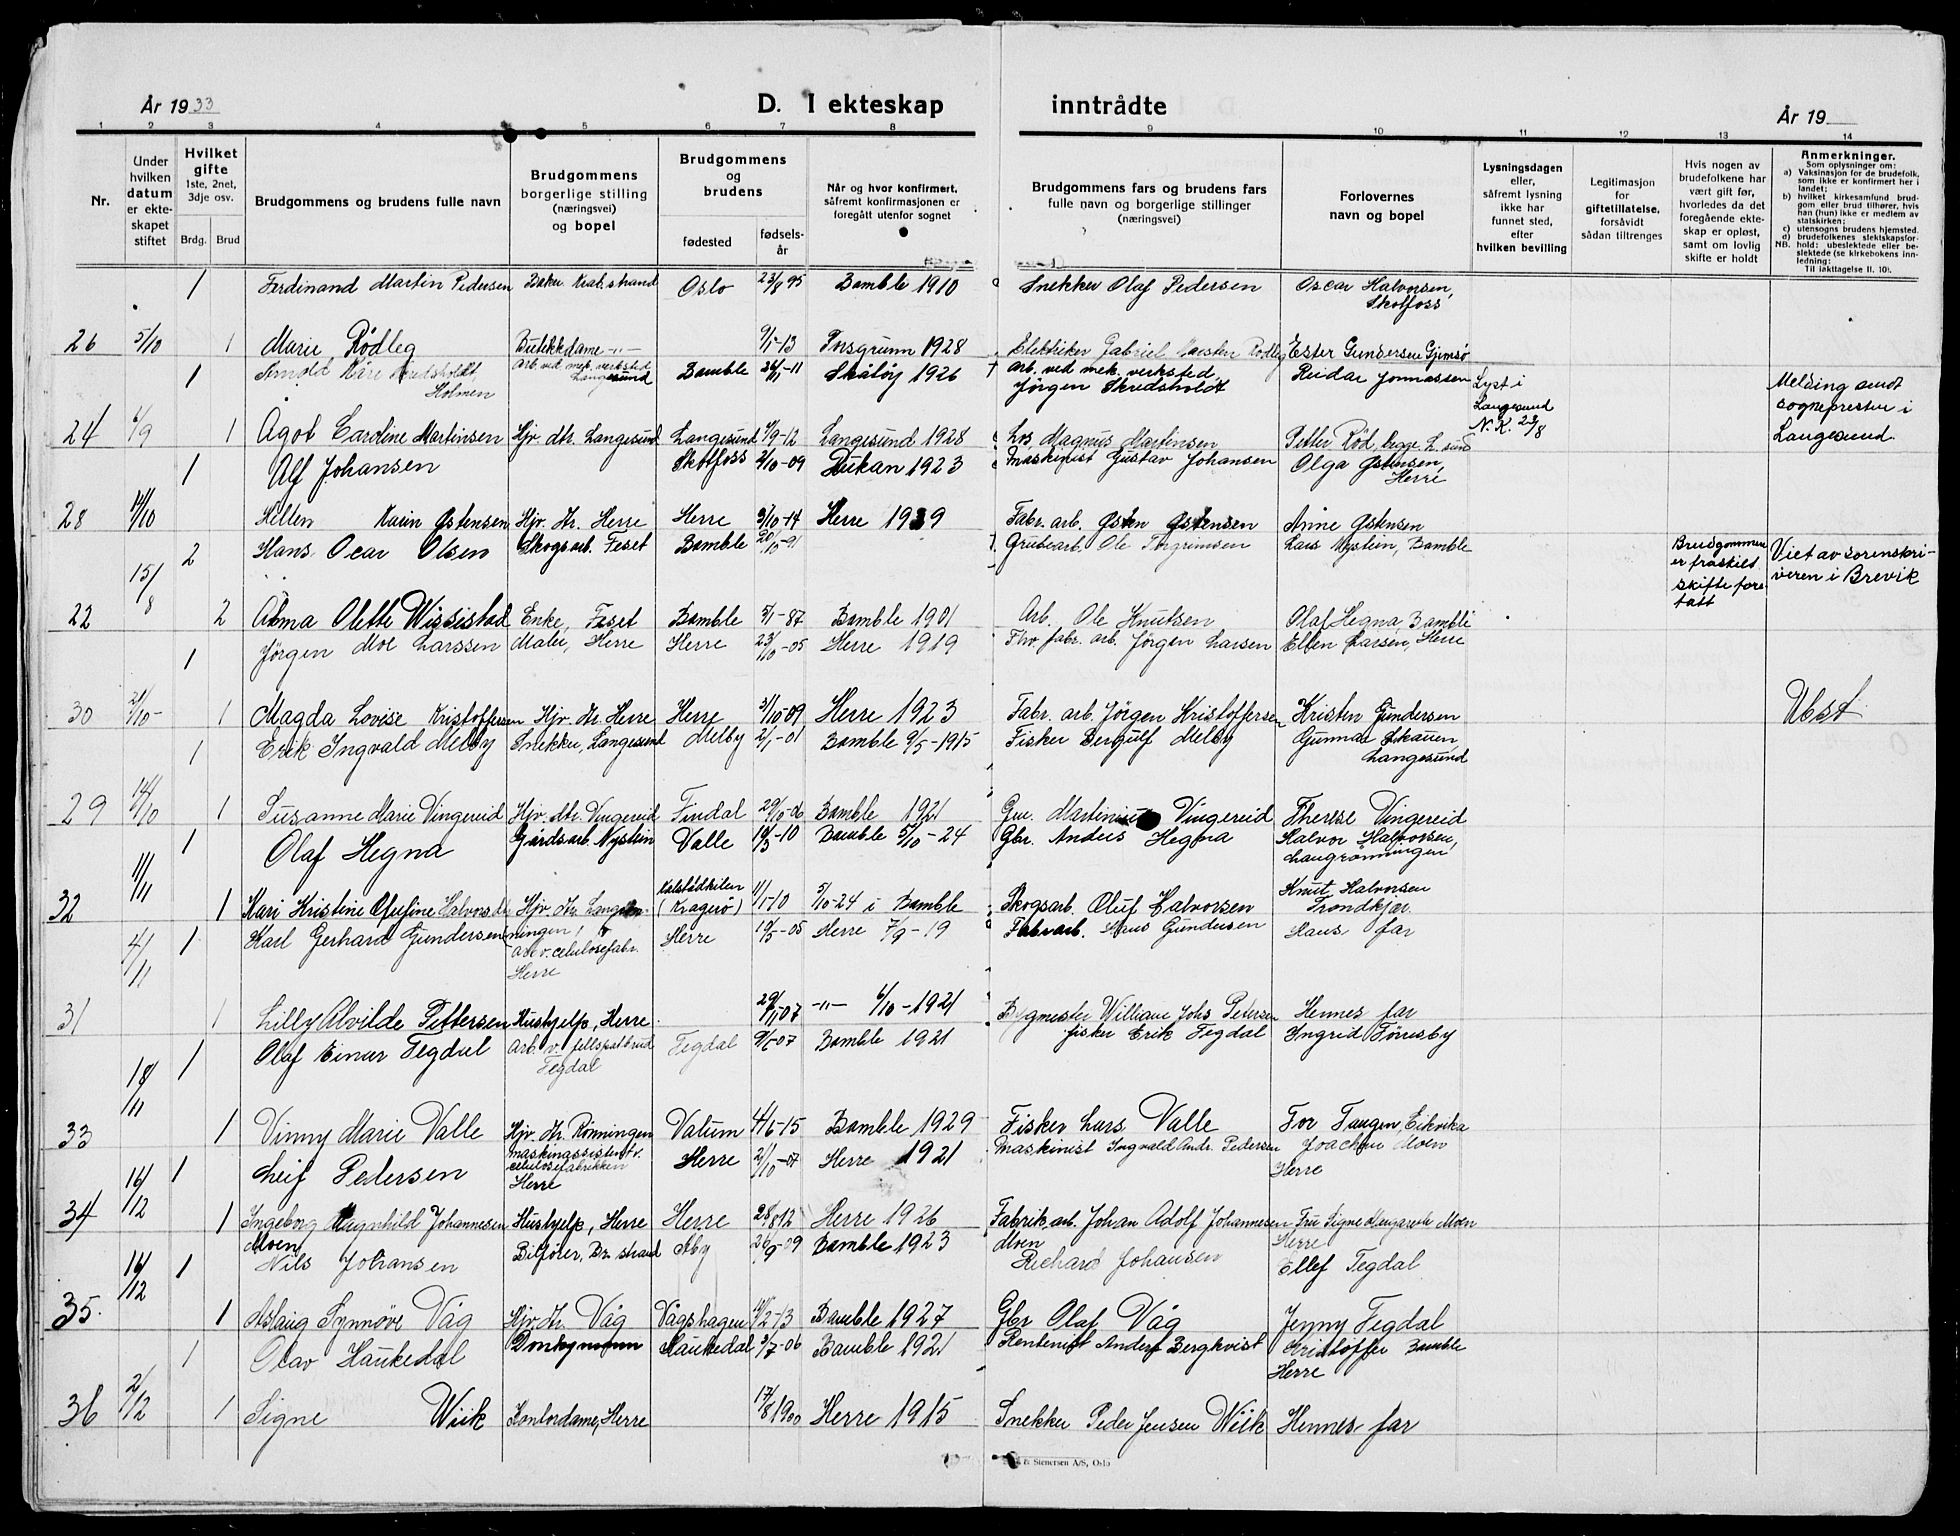 År 19 33
D. I ekteskap inntrådte
År 19
1 2 3 4 5 6 7 8 9 10 11 12 13 14
Nr.
Under hvilken datum er ekteskapet stiftet
Hvilket gifte 1ste, 2net, 3dje osv.
Brdg. Brud
Brudgommens og brudens fulle navn
Brudgommens borgerlige stilling (næringsvei) og bopel
Brudgommens og brudens
fødested
fødselsår
Når og hvor konfirmert, såfremt konfirmasjonen er foregått utenfor sognet
Brudgommens fars og brudens fars fulle navn og borgerlige stillinger (næringsvei)
Forlovernes navn og bopel
Lysningsdagen eller, såfremt lysning ikke har funnet sted, efter hvilken bevilling
Legitimasjon for giftetillatelse, forsåvidt sådan tiltrenges
Hvis nogen av brudefolkene har vært gift før, hvorledes da det foregående ekteskap er opløst, samt om lovlig skifte er holdt
Anmerkninger.
Som oplysninger om:
a) Vaksinasjon for de brudefolk, som ikke er konfirmert her i landet;
b) hvilket kirkesamfund brudgom eller brud tilhører, hvis han (hun) ikke er medlem av statskirken;
c) utensogns brudens hjemsted.
d) brudefolkenes slektskapsforhold: ubeslektede eller beslektede (se kirkebokens innledning:
NB. Til iakttagelse II. 10).
1 Ferdinand Martin Pedersen Oslo 23/8 95 Bamble 1910 Snekker Olaf Pedersen Oscar Halvorsen, Skotfoss
26 5/10 1 Marie Rødleg Butikkdame -"- 9/1-13 Porsgrunn 1928 Gabriel Rødleg Ester Gundersen Gjemsø
1 Arnold Kåre Skudsholdt Holmen Arb. ved mek. verksted Langesund Bamble 26/11-11 Skåtøy 1926 Arb. ved mek. verksted Jörgen Skudsholdt Reidar Jonnassen
Lyst i Langesund N.K. 26/8
Melding sendt sogneprester i Langesund.
24 6/9 1 Agot Caroline Martinsen Hjv. dtr. Langesund Langesund 9/9-12 Langesund 1928 Los Magnus Martinsen Petter Röd begge L.sund
1 Alf Johansen Skotfoss 2/10-09 Rukan 1923 Maskinist Gustav Johansen Olga Østensen, Herre
28 14/10 Hellen Karin Østensen Hjv. dtr. Herre Herre 3/10-14 Herre 1929 Fabr. arb. Østen Østensen Anne Østensen
15/8 2 Hans Oscar Olsen Skogsarb. Feset Bamble 20/10-91 Grubearb. Ole Torgrimsen Lars Nystein, Bamble
Brudgommen er fraskilt skifte foretatt
Viet av sorenskriveren i Brevik
22 2 Alma Olette Wissistad Enke, Feset Bamble 5/1-87 Bamble 1901 Arb. Ole Knutsen Olaf Hegna, Bamble
1 Jørgen Moe Larssen Maler, Herre Herre 23/10-05 Herre 1919 Fhv. fabr. arb. Jörgen Larsen Ellen Larsen, Herre
30 21/10- 1 Magda Lovise Kristoffersen Hjv. dtr. Herre Herre 31/10-09 Herre 1923 Fabr. arb. Jörgen Kristoffersen Kristen Gundersen
Ubsl.
1 Erik Ingvald Melby Snekker, Langesund Melby 2/1-01 Bamble 9/5-1915 Fisker Bergulf Melby Gunnar Skauen, Langesund
29 14/10 1 Susanne Marie Vingereid Hjv. dtr. Vingereid Findal 29/10-06 Bamble 1921 Gm. Martinius Vingereid Therese Vingereid
11/11 1 Olaf Hegna Gårdsarb. Nystein Valle 19/3-10 Bamble 5/10-24 Gbr. Anders Hegna Halvor Halvorsen, Langrønningen
32 1 Kari Kristine Halvorsen Hjv. dtr. Langrønningen, Kalstadkilen (Kragerø) 11/1-10 5/10-24 i Bamble Skogsarb. Oluf Halvorsen Knut Halvorsen Trondkjær
4/11 1 Karl Gerhard Gundersen Arb. v. cellulosefabr. Herre Herre 19/5-05 Herre 7/9-19 Fabr.arb. Hans Gundersen Hans far
31 1 Lilly Alvilde Pettersen Hushjelp, Herre 29/1-07 -"- 6/10-1921 Bygmester William Johs Petersen Hennes far
18/11 1 Olaf Einar Tegdal Arb. v. feltspatbrud Tegdal Tegdal 9/6-07 Bamble 1921 fisker Erik Tegdal Ingrid Tönesby
33 1 Vinny Marie Valle Hjv. dtr. Rønningen Valum 4/6-15 Bamble 1929 Fisker Lars Valle Tor Tangen, Eikvika
16/12 1 Leif Pedersen Maskinassistent v. cellulosefabrikken Herre Herre 2/10-07 Herre 1921 Maskinist Ingvald Andr. Pedersen Joachim Moen Herre
34 1 Ingeborg Magnhild Johannesen Moen Hushjelp, Herre Herre 28/8 12 Herre 1926 Fabrik.arb. Johan Adolf Johannesen Moen Fru Signe Margarete Moen Herre
16/12 1 Nils Johansen Bilfører, Br. strand Åby 26/9-09 Bamble 1923 Richard Johansen Ellef Tegdal
35. 1 Aslaug Synnöve Våg Hjv. dtr. Våg Vågshagen /2-13 Bamble 1927 Gbr Olaf Våg Jenny Tegdal
1 Olav Haukedal Donkeymann Haukedal 3/7-06 Bamble 1921 Rentenist Anders Bergkvist Kristoffer Bamble Herre
36 2/12 1 Signe Wiik Kontordame, Herre 17/8 1900 Herre 1915 Snekker Peder Jensen Wiik Hennes far
& Stenersen A/S, Oslo